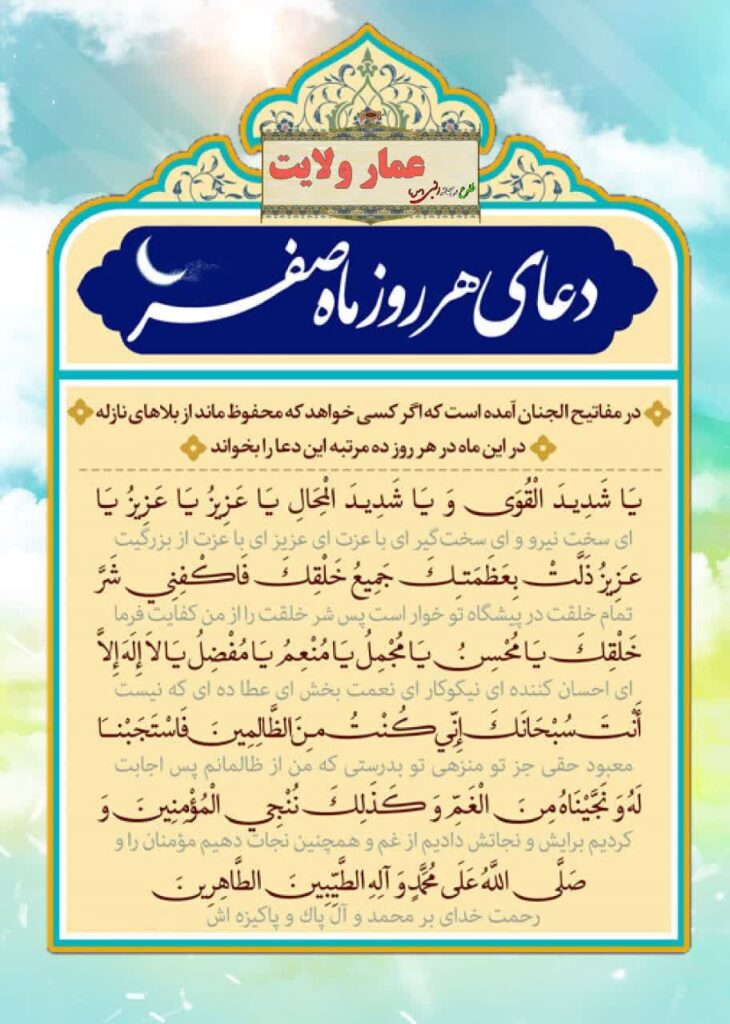 عمار ولایت
دعای هر روز ماه صفر
در مفاتیح الجنان آمده است که اگر کسی خواهد که محفوظ ماند از بلاهای نازله
در این ماه در هر روز ده مرتبه این دعا را بخواند
يَا شَدِيدَ الْقُوَى وَ يَا شَدِيدَ الْمِحَالِ يَا عَزِيزُ يَا عَزِيزُ يَا
ای سخت نیرو و ای سخت‌گیر ای با عزت ای عزیز ای با عزت از بزرگیت
عَزِيزُ ذَلَّتْ بِعَظَمَتِكَ جَمِيعُ خَلْقِكَ فَاكْفِنِي شَرَّ
تمام خلقت در پیشگاه تو خوار است پس شر خلقت را از من کفایت فرما
خَلْقِكَ يَا مُحْسِنُ يَا مُجْمِلُ يَا مُنْعِمُ يَا مُفْضِلُ يَا لاَ إِلَهَ إِلاَّ
ای احسان کننده ای نیکوکار ای نعمت بخش ای عطا ده ای که نیست
أَنْتَ سُبْحَانَكَ إِنِّي كُنْتُ مِنَ الظَّالِمِينَ فَاسْتَجَبْنَا
معبود حقی جز تو منزهی تو بدرستی که من از ظالمانم پس اجابت
لَهُ وَ نَجَّيْنَاهُ مِنَ الْغَمِّ وَ كَذَلِكَ نُنْجِي الْمُؤْمِنِينَ وَ
کردیم برایش و نجاتش دادیم از غم و همچنین نجات دهیم مؤمنان را و
صَلَّى اللَّهُ عَلَى مُحَمَّدٍ وَ آلِهِ الطَّيِّبِينَ الطَّاهِرِينَ
رحمت خدای بر محمد و آل پاك و پاکیزه اش